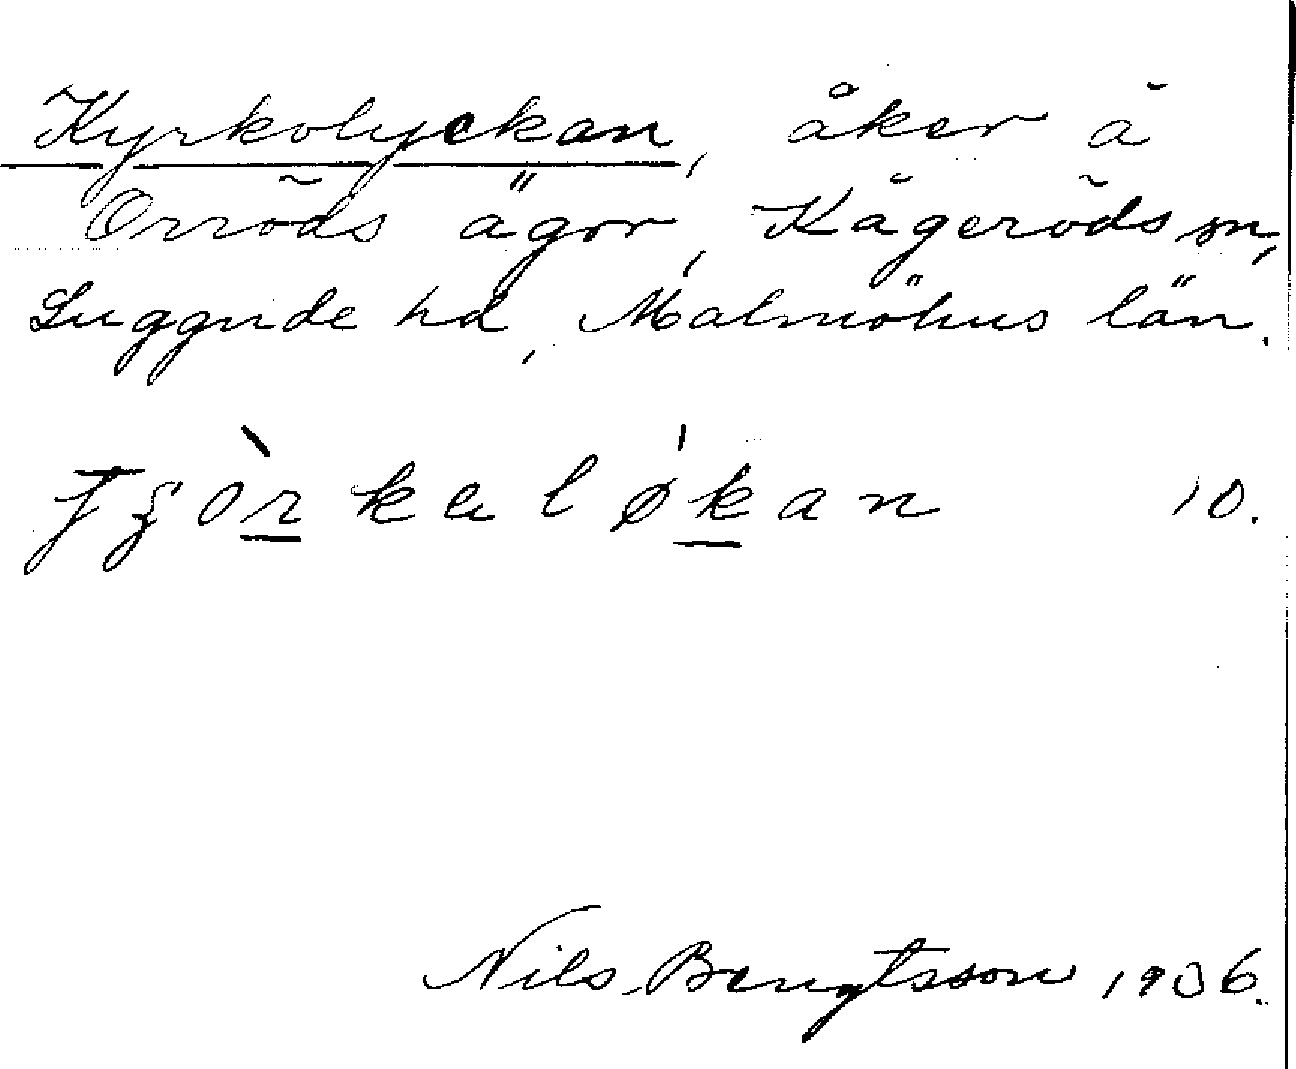 Kyrkolyckan, åker å
Orröds ägor, Kågeröds sn,
Luggude hd, Malmöhus län.
ʃʒòr̲kaløḱ̲an 10.
Nils Bengtsson 1936.